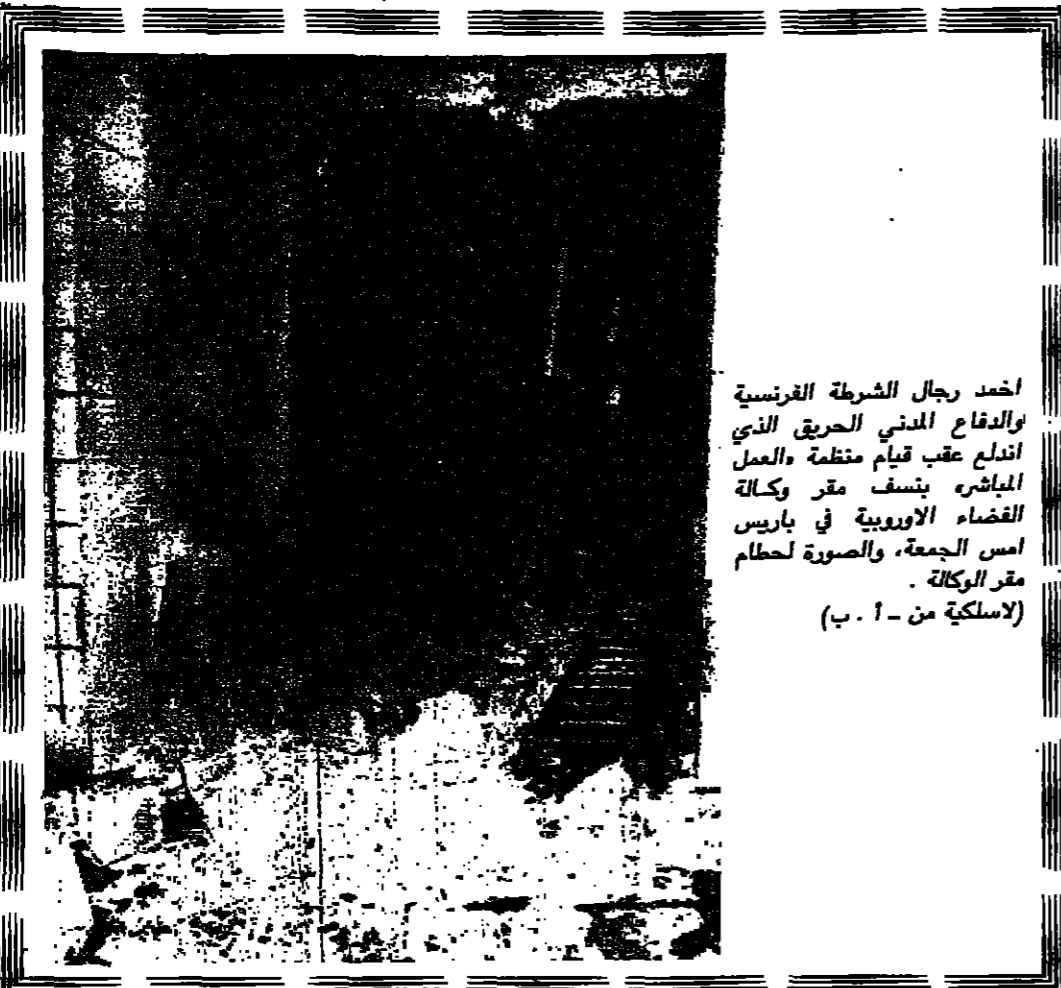 اخمد رجال الشرطة الفرنسية
والدفاع المدني الحريق الذي
اندلع عقب قيام منظمة «العمل
المباشر» بنسف مقر وكالة
الفضاء الاوروبية في باريس
امس الجمعة، والصورة لحطام
مقر الوكالة .
(لاسلكية من ـ أ . ب)